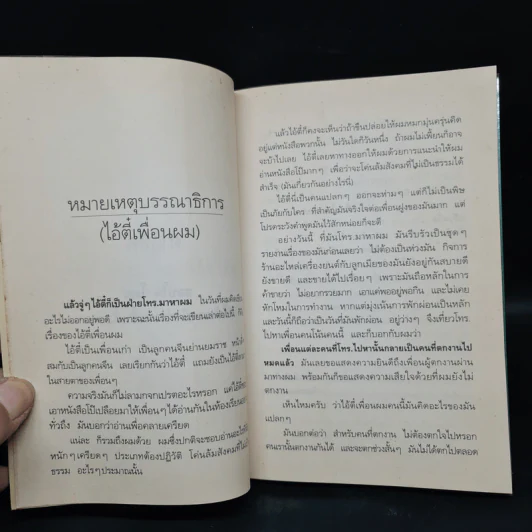 หมายเหตุบรรณาธิการ
(ไอ้ตี๋เพื่อนผม)
แล้วจู่ๆ ไอ้ตี๋ก็เป็นฝ่ายโทร.มาหาผม ในวันที่ผมคิดเขียน
อะไรไม่ออกอยู่พอดี เพราะฉะนั้นเรื่องที่จะเขียนเล่าต่อไปนี้
เรื่องของไอ้ตี๋เพื่อนผม
ไอ้ตี๋เป็นเพื่อนเก่า เป็นลูกคนจีนย่านยมราช
สมกับเป็นลูกคนจีน เลยเรียกกันว่าไอ้ตี๋ แถมยังเป็นไอ้ตี๋
ในสายตาของเพื่อนๆ
ความจริงมันก็ไม่ลามกจกเปรตอะไรหรอก แค่ไอ้ตี๋
เอาหนังสือโป๊เปลือยมาให้เพื่อนๆ ได้อ่านกันในห้องเรียน
ทั่วถึง มันบอกว่าอ่านเพื่อคลายเครียด
แน่ละ ก็รวมถึงผมด้วย ผมซึ่งปกติจะชอบอ่าน
หนักๆ เครียดๆ ประเภทต้องปฏิวัติ โค่นล้มสังคมที่
ธรรม อะไรๆ ประมาณนั้น
แล้วไอ้ตี๋ก็คงจะเห็นว่าถ้าขืนปล่อยให้ผมหมกมุ่นครุ่นคิด
อยู่แต่หนังสือพวกนั้น ไม่วันใดก็วันหนึ่ง ถ้าผมไม่เพี้ยนก็อาจ
จะบ้าไปเลย ไอ้ตี๋เลยหาทางออกให้ผมด้วยการแนะนำให้ผม
อ่านหนังสือโป๊มากๆ เพื่อว่าจะโค่นล้มสังคมที่ไม่เป็นธรรมได้
สำเร็จ (มันเกี่ยวกันอย่างไรนี่)
ไอ้ตี๋นี่เป็นคนแปลกๆ ออกจะห่ามๆ แต่ก็ไม่เป็นพิษ
เป็นภัยกับใคร ที่สำคัญมันจริงใจต่อเพื่อนฝูงของมันมาก แต่
โปรดระวังคำพูดมันไว้สักหน่อยก็จะดี
อย่างวันนี้ ที่มันโทร.มาหาผม มันรีบรัวเป็นชุดๆ
รายงานเรื่องของมันก่อนเลยว่า ไม่ต้องเป็นห่วงมัน กิจการ
ร้านอะไหล่เครื่องยนต์กับลูกเมียของมันยังอยู่กันสบายดี
ยังขายดี และขายได้ไปเรื่อยๆ เพราะมันถือหลักในการ
ค้าขายว่า ไม่อยากรวยมาก เอาแค่พออยู่พอกิน และไม่เคย
หักโหมในการทำงาน หากแต่มุ่งเน้นการพักผ่อนเป็นหลัก
และวันนี้ก็ถือว่าเป็นวันที่มันพักผ่อน อยู่ว่างๆ จึงเที่ยวโทร.
ไปหาเพื่อนคนโน้นคนนี้ และก็บอกกับผมว่า
เพื่อนแต่ละคนที่โทร.ไปหานั้นกลายเป็นคนที่ตกงานไป
หมดแล้ว มันเลยขอแสดงความยินดีถึงเพื่อนผู้ตกงานผ่าน
มาทางผม พร้อมกันก็ขอแสดงความเสียใจด้วยที่ผมยังไม่
ตกงาน
เห็นไหมครับ ว่าไอ้ตี๋เพื่อนผมคนนี้มันคิดอะไรของมัน
แปลกๆ
มันบอกต่อว่า สำหรับคนที่ตกงาน ไม่ต้องตกใจไปหรอก
คนเรานั้นตกงานกันได้ และจะตกช่วงสั้นๆ มันไม่ได้ตกไปตลอด